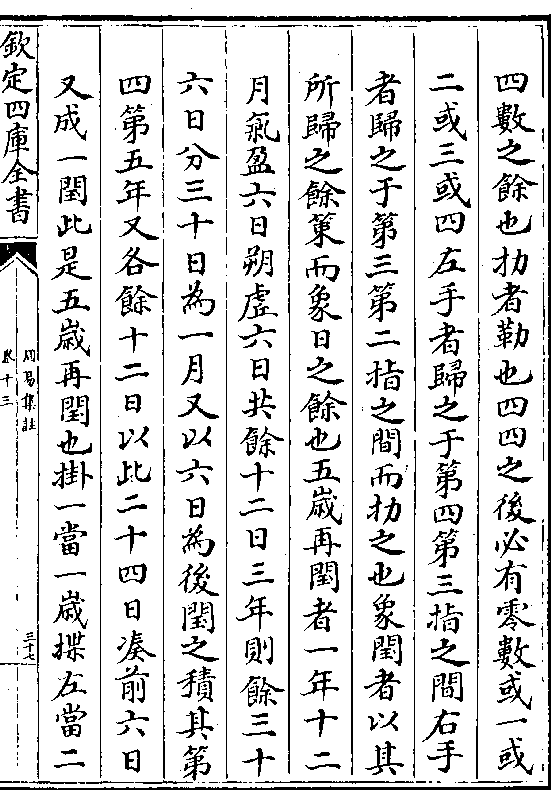 四數之餘也扐者勒也四四之後必有零數或一或
二或三或四左手者歸之于第四第三指之間右手
者歸之于第三第二指之間而扐之也象閏者以其
所歸之餘䇿而象日之餘也五歲再閏者一年十二
月氣盈六日朔虛六日共餘十二日三年則餘三十
六日分三十日為一月又以六日為後閏之積其第
四第五年又各餘十二日以此二十四日凑前六日
又成一閏此是五歲再閏也掛一當一歲揲左當二
欽定四庫全書
周易集註
卷十三
三十七